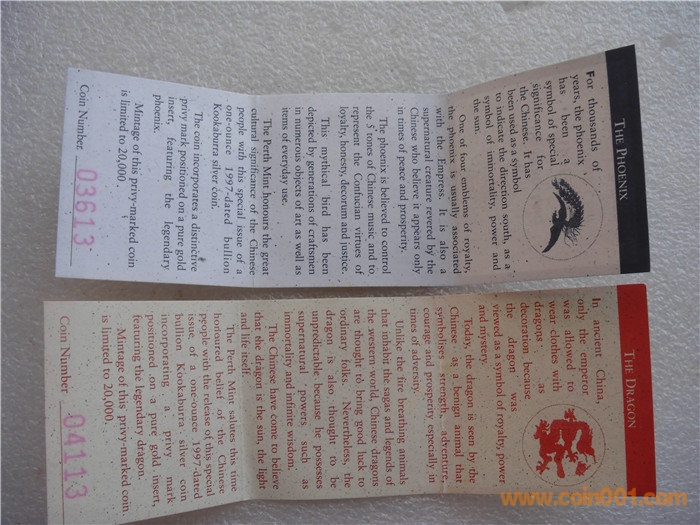 THE PHOENIX
For thousands of
years, the phoenix
has been a
symbol of special
significance for
the Chinese. It has
been used as a symbol
to indicate the direction south, as a
symbol of immortality, power and
the sun.
One of four emblems of royalty,
the phoenix is usually associated
with the Empress. It is also a
supernatural creature revered by the
Chinese who believe it appears only
in times of peace and prosperity.
The phoenix is believed to control
the 5 tones of Chinese music and to
represent the Confucian virtues of
loyalty, honesty, decorum and justice.
This mythical bird has been
depicted by generations of craftsmen
in numerous objects of art as well as
items of everyday use.
The Perth Mint honours the great
cultural significance of the Chinese
people with this special issue of a
one-ounce 1997-dated bullion
Kookaburra silver coin.
The coin incorporates a distinctive
privy mark positioned on a pure gold
insert, featuring the legendary
phoenix.
Mintage of this privy-marked coin
is limited to 20,000.
Coin Number 03613
THE DRAGON
In ancient China,
only the emperor
was allowed to
wear clothes with
dragons as
decoration because
the dragon was
viewed as a symbol of royalty, power
and mystery.
Today, the dragon is seen by the
Chinese as a benign animal that
symbolises strength, adventure,
courage and prosperity especially in
times of adversity.
Unlike the fire breathing animals
that inhabit the sagas and legends of
the western world, Chinese dragons
are thought to bring good luck to
ordinary folks. Nevertheless, the
dragon is also thought to be
unpredictable because he possesses
supernatural powers such as
immortality and infinite wisdom.
The Chinese have come to believe
that the dragon is the sun, the light
and life itself.
The Perth Mint salutes this time
honoured belief of the Chinese
people with the release of this special
issue of a one-ounce 1997-dated
bullion Kookaburra silver coin
incorporating a privy mark
positioned on a pure gold insert,
featuring the legendary dragon.
Mintage of this privy-marked coin
is limited to 20,000.
Coin Number 04113
www.coin001.com